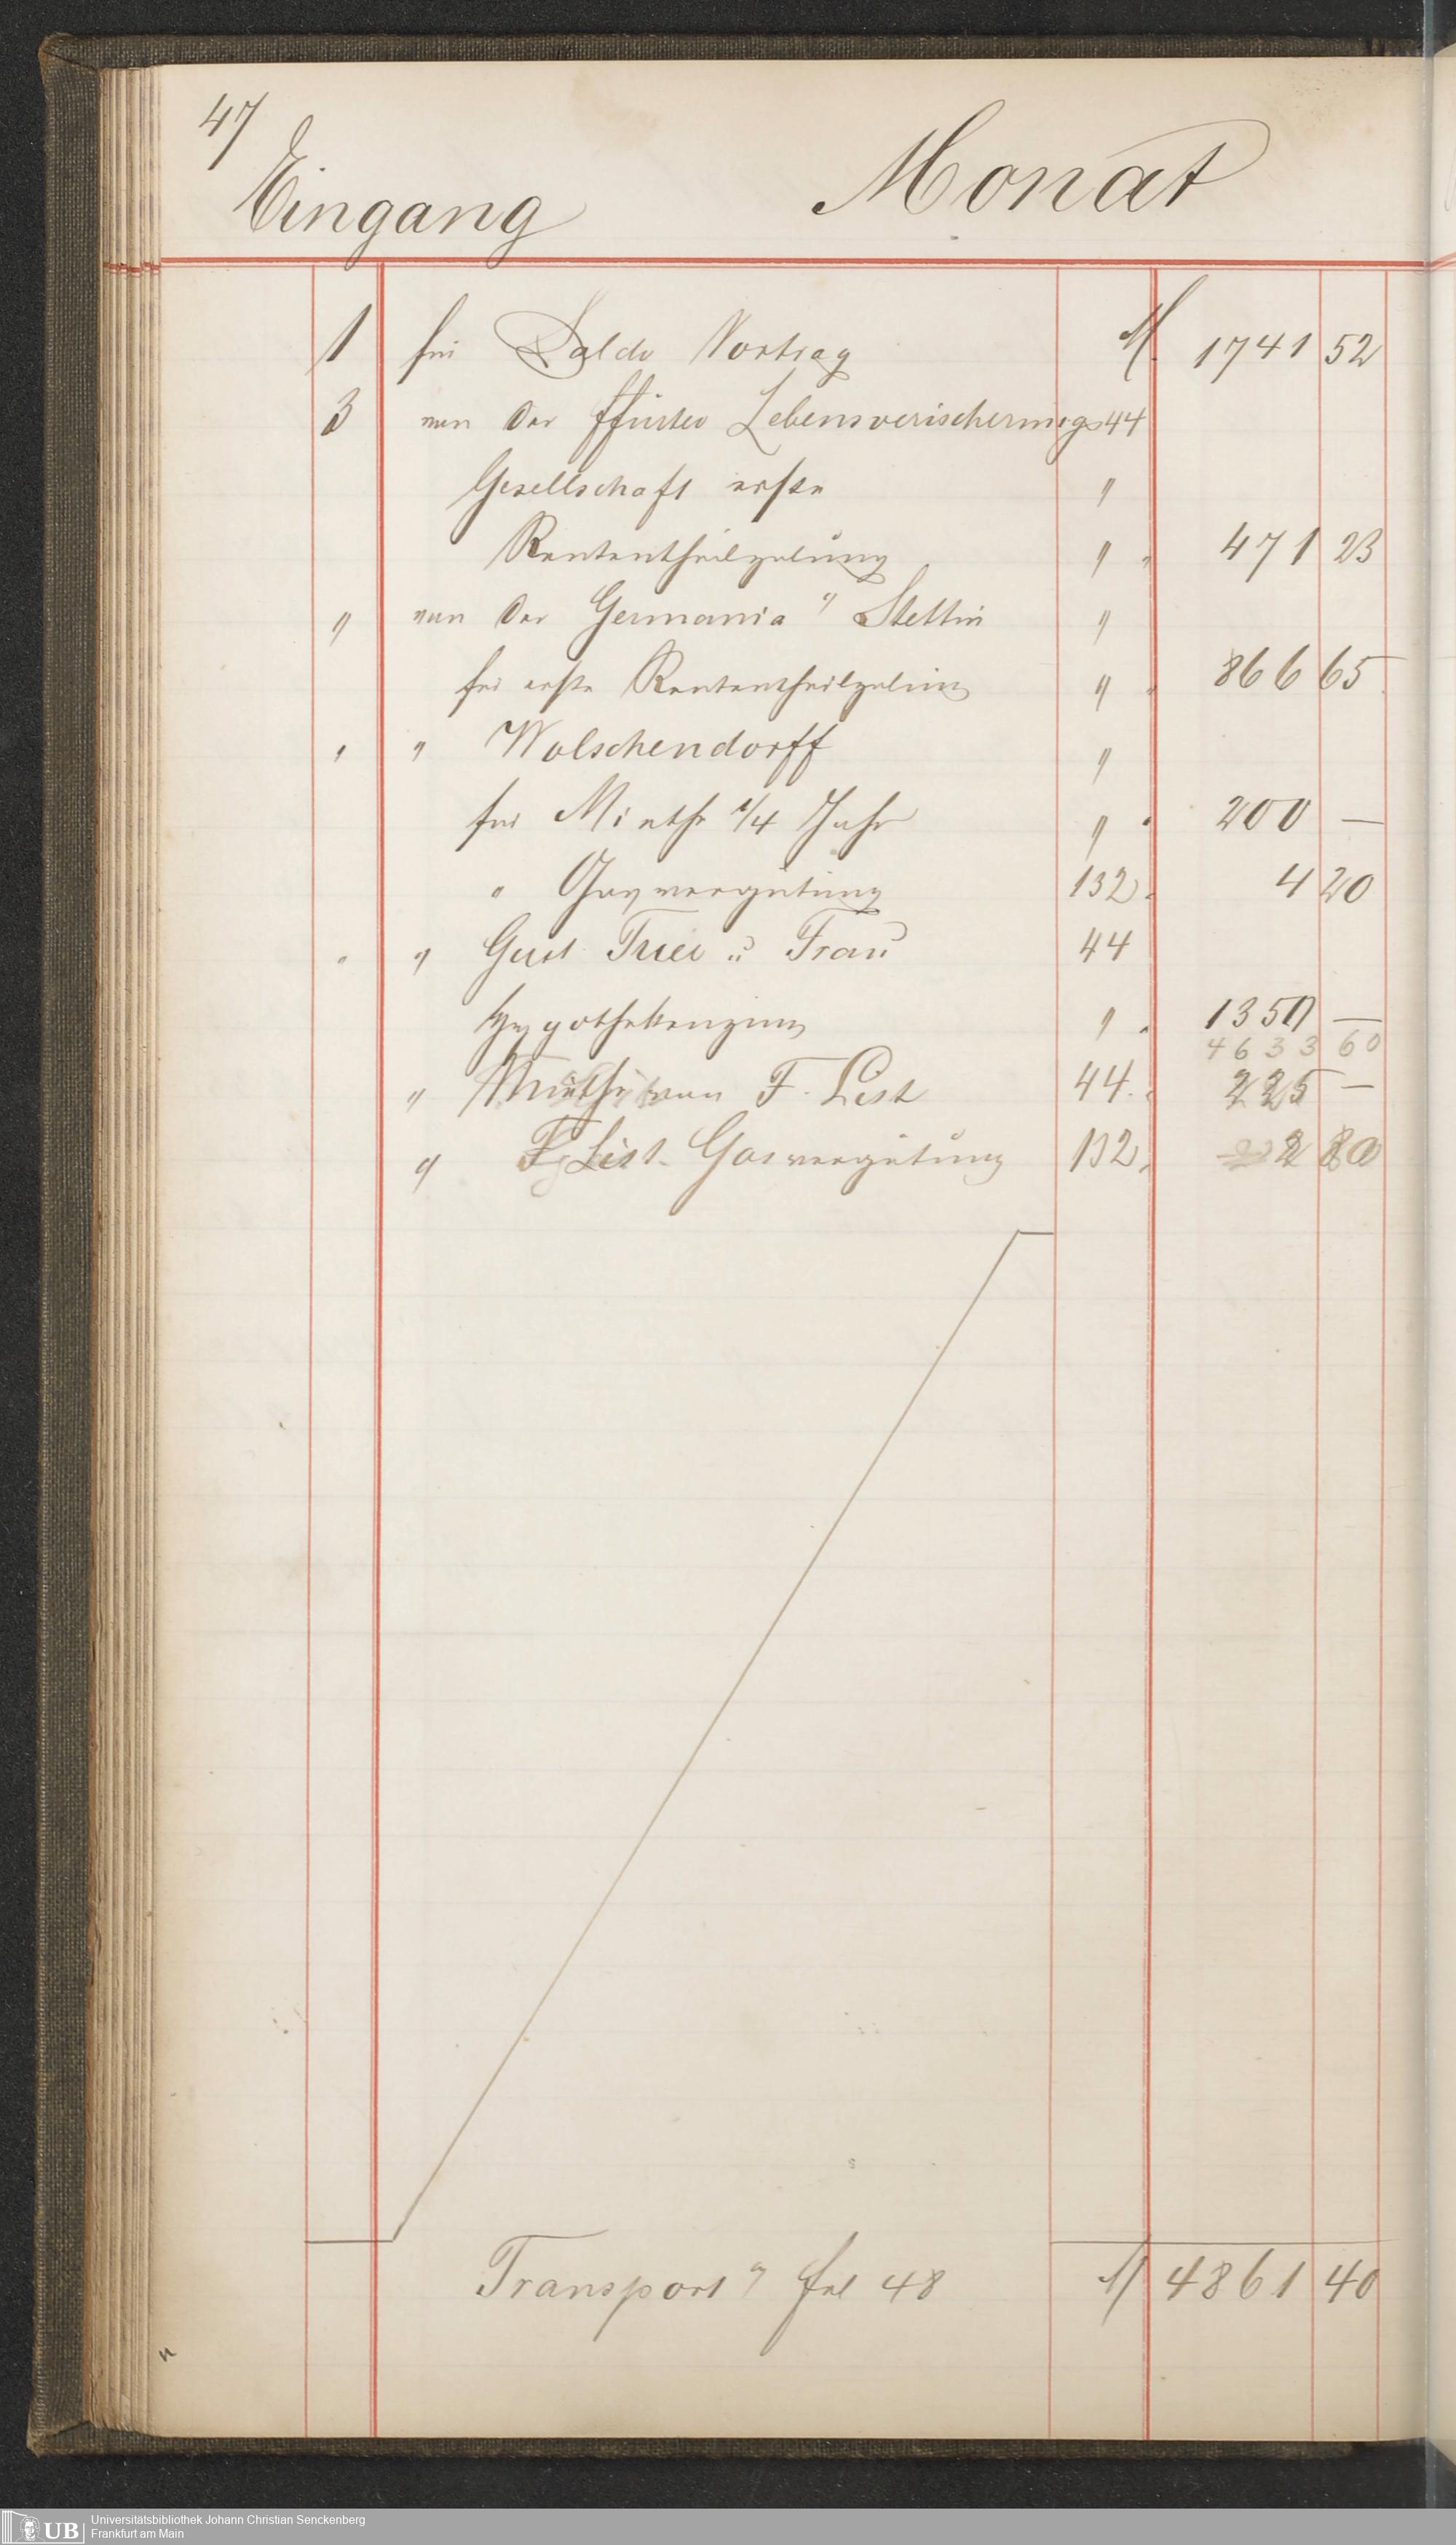 47
Eingang Monat
1 für Saldo Vortrag M. 1741 52
3 von der Ffurter Lebensverischerungs 44
Gesellschaft erste "
Rententheilzalung " 471 23
" von der Germania " Stettin "
für erste Rententheilzalung " 866 65
" " Wolschendorff "
für Miethe 1/4 Jahr " 200 —
" Gasvergütung 132. 4 20
" " Gust Trier u Frau 44
Hypothekenzins " 1350 —
4633 60
" Miethe von F. List 44. 225 —
" F. List. Gasvergütung 132. 2 80
Transport " fol 48 M 4861 40
Universitätsbibliothek Johann Christian Senckenberg
UB Frankfurt am Main